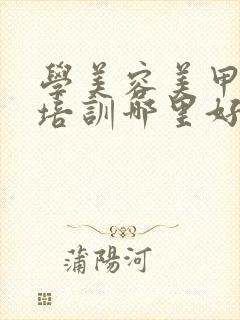 學美容美甲
培訓哪里好
蒲陽河